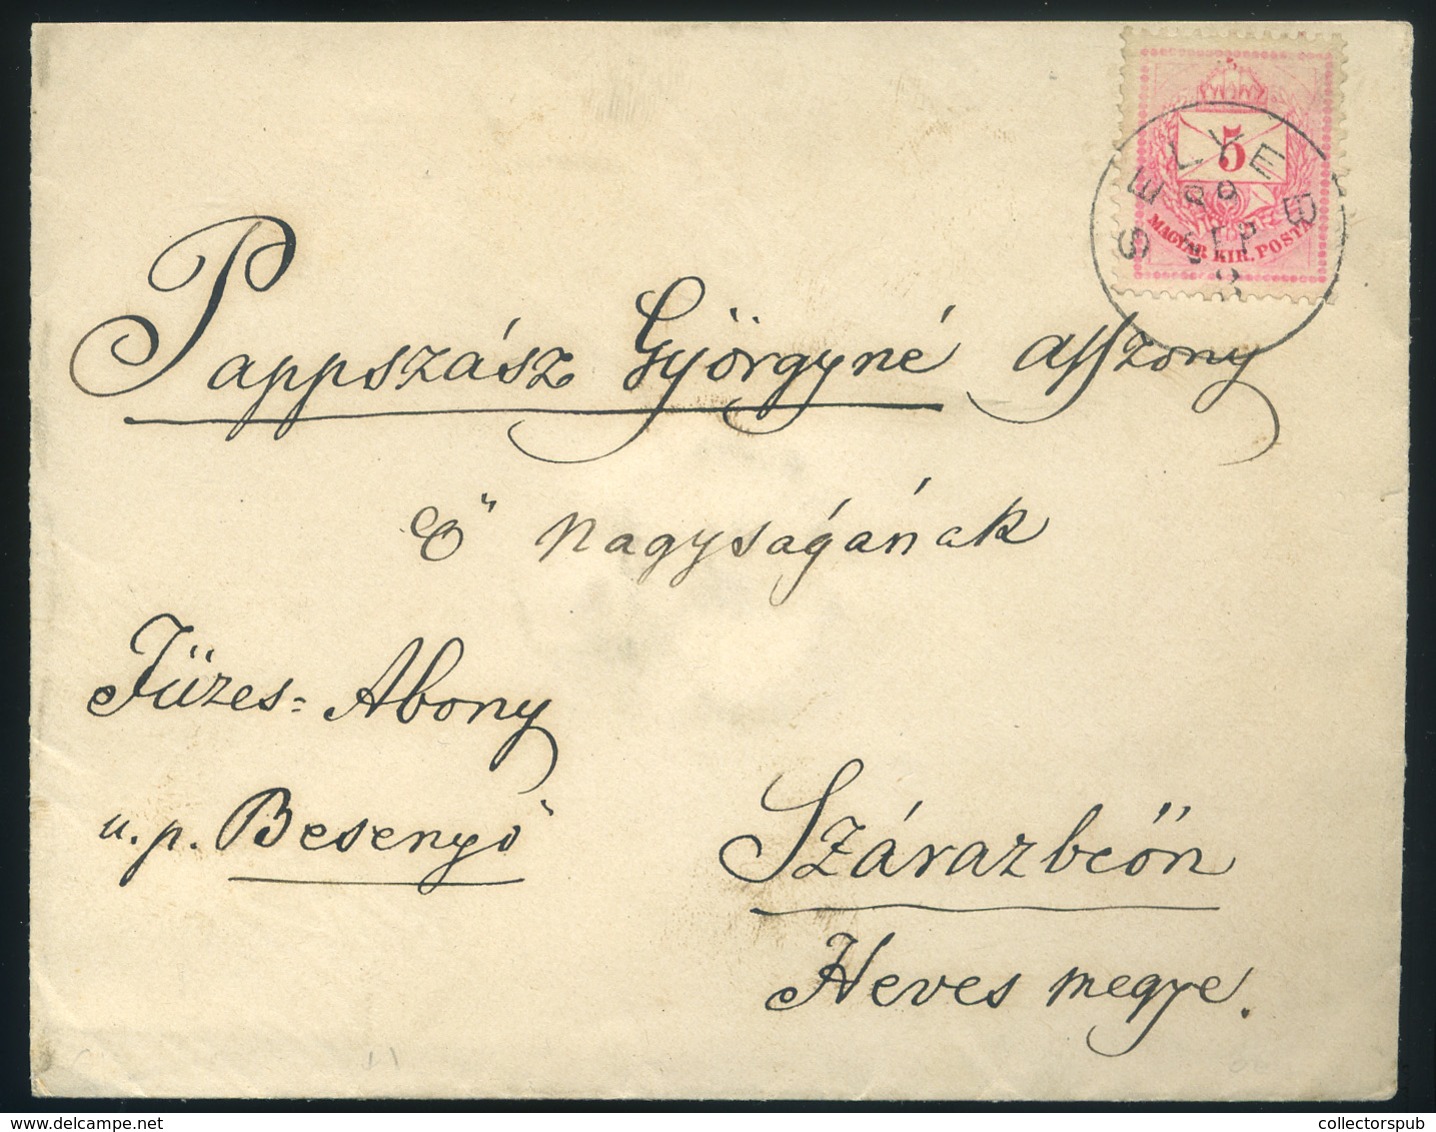 5
MAGYAR KIR. POSTA
SELYEB
89
SEP
Pappszász Györgyné asszony
Ő Nagyságának
Füzes=Abony
u.p. Besenyő
Szárazbeőn
Heves megye.
collectorspub